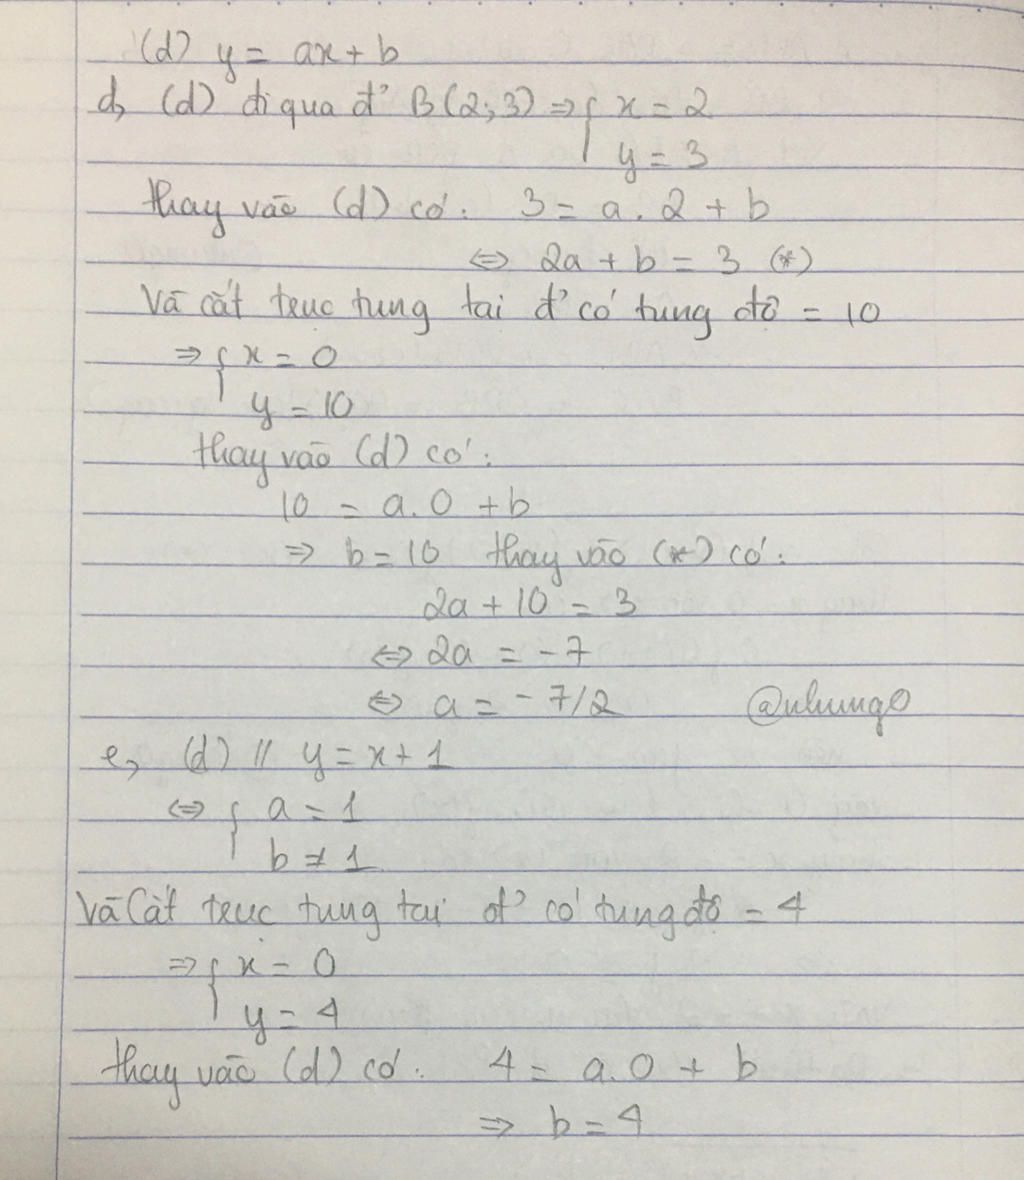 (d) y = ax + b
d, (d) đi qua đ' B(2;3) ⇒ { x = 2
y = 3
thay vào (d) có: 3 = a.2 + b
⇔ 2a + b = 3 (*)
Và cắt trục tung tại đ' có tung độ = 10
⇒ { x = 0
y = 10
thay vào (d) có:
10 = a.0 + b
⇒ b = 10 thay vào (*) có:
2a + 10 = 3
⇔ 2a = -7
⇔ a = -7/2
e, (d) // y = x + 1
⇔ { a = 1
b ≠ 1
Và Cắt trục tung tại đ' có tung độ = 4
⇒ { x = 0
y = 4
thay vào (d) có: 4 = a.0 + b
⇒ b = 4